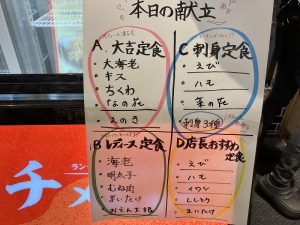 本日の献立
A.大吉定食
・大海老
・キス
・ちくわ
・なの花
・えのき
C刺身定食
・えび
・ハモ
・菜の花
・刺身3種
Bレディース定食
・海老
・明太子
・むね肉
・まいたけ
・おでん大根
D店長おすすめ
定食
・えび
・ハモ
・イワシ
・ししとう
・まいたけ
ラン
チメ